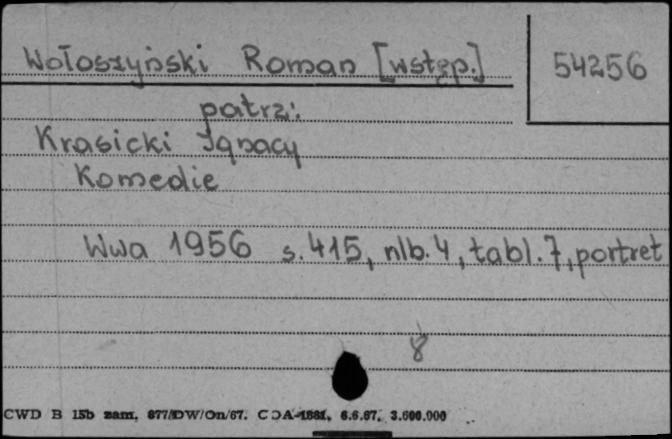 Wołoszyński Roman [wstęp.]
54256
patrz:
Krasicki Ignacy
Komedie
Wwa 1956 s. 415, nlb. 4, tabl. 7, portret
8
CWD B 15b zam. 877/DW/On/67. CDA-1881, 6.6.67. 3.600.000